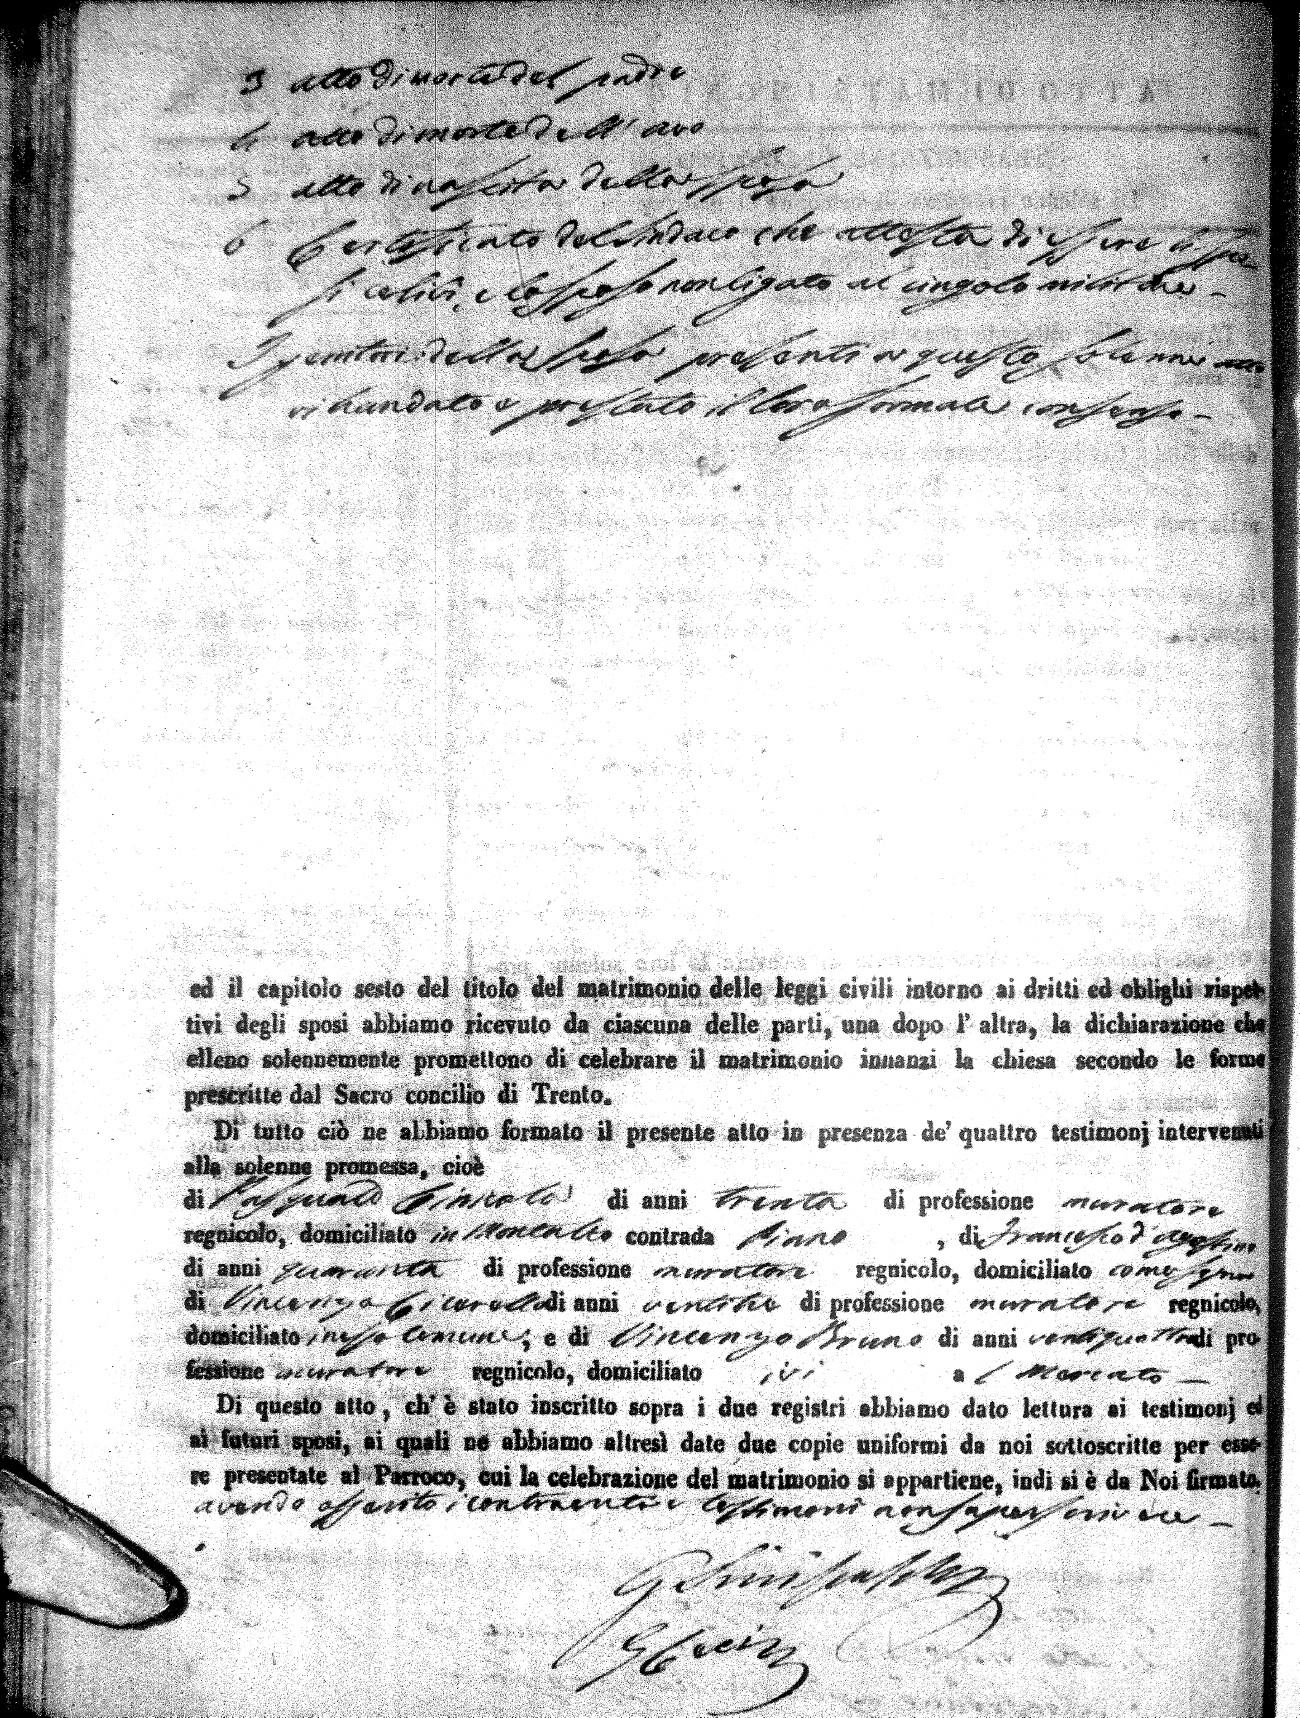 3 atto di morte del padre
4 atto di morte dell' avo
5 atto di nascita della sposa
6 Certificato del Sindaco che attesta di essere
celibi, e lo sposo non ligato al cingolo militare –
I genitori della sposa presenti a questo solenne atto
prestato il loro formale consenso –
ed il capitolo sesto del titolo del matrimonio delle leggi civili intorno ai dritti ed oblighi rispet-
tivi degli sposi abbiamo ricevuto da ciascuna delle parti, una dopo l' altra, la dichiarazione che
elleno solennemente promettono di celebrare il matrimonio innanzi la chiesa secondo le forme
prescritte dal Sacro concilio di Trento.
Di tutto ciò ne abbiamo formato il presente atto in presenza de' quattro testimonj intervenuti
alla solenne promessa, cioè
di Pasquale di anni trenta di professione muratore
regnicolo, domiciliato in contrada Piano , di Francesco d'Agostino
di anni quaranta di professione muratore regnicolo, domiciliato come sopra
di Vincenzo di anni ventitre di professione muratore regnicolo,
domiciliato in esso comune, e di Vincenzo Bruno di anni ventiquattro di pro-
fessione muratore regnicolo, domiciliato ivi a Mercato –
Di questo atto, ch' è stato inscritto sopra i due registri abbiamo dato lettura ai testimonj ed
ai futuri sposi, ai quali ne abbiamo altresì date due copie uniformi da noi sottoscritte per esse-
re presentate al Parroco, cui la celebrazione del matrimonio si appartiene, indi si è da Noi firmato.
avendo asserito i contraenti e testimoni non saper scrivere –